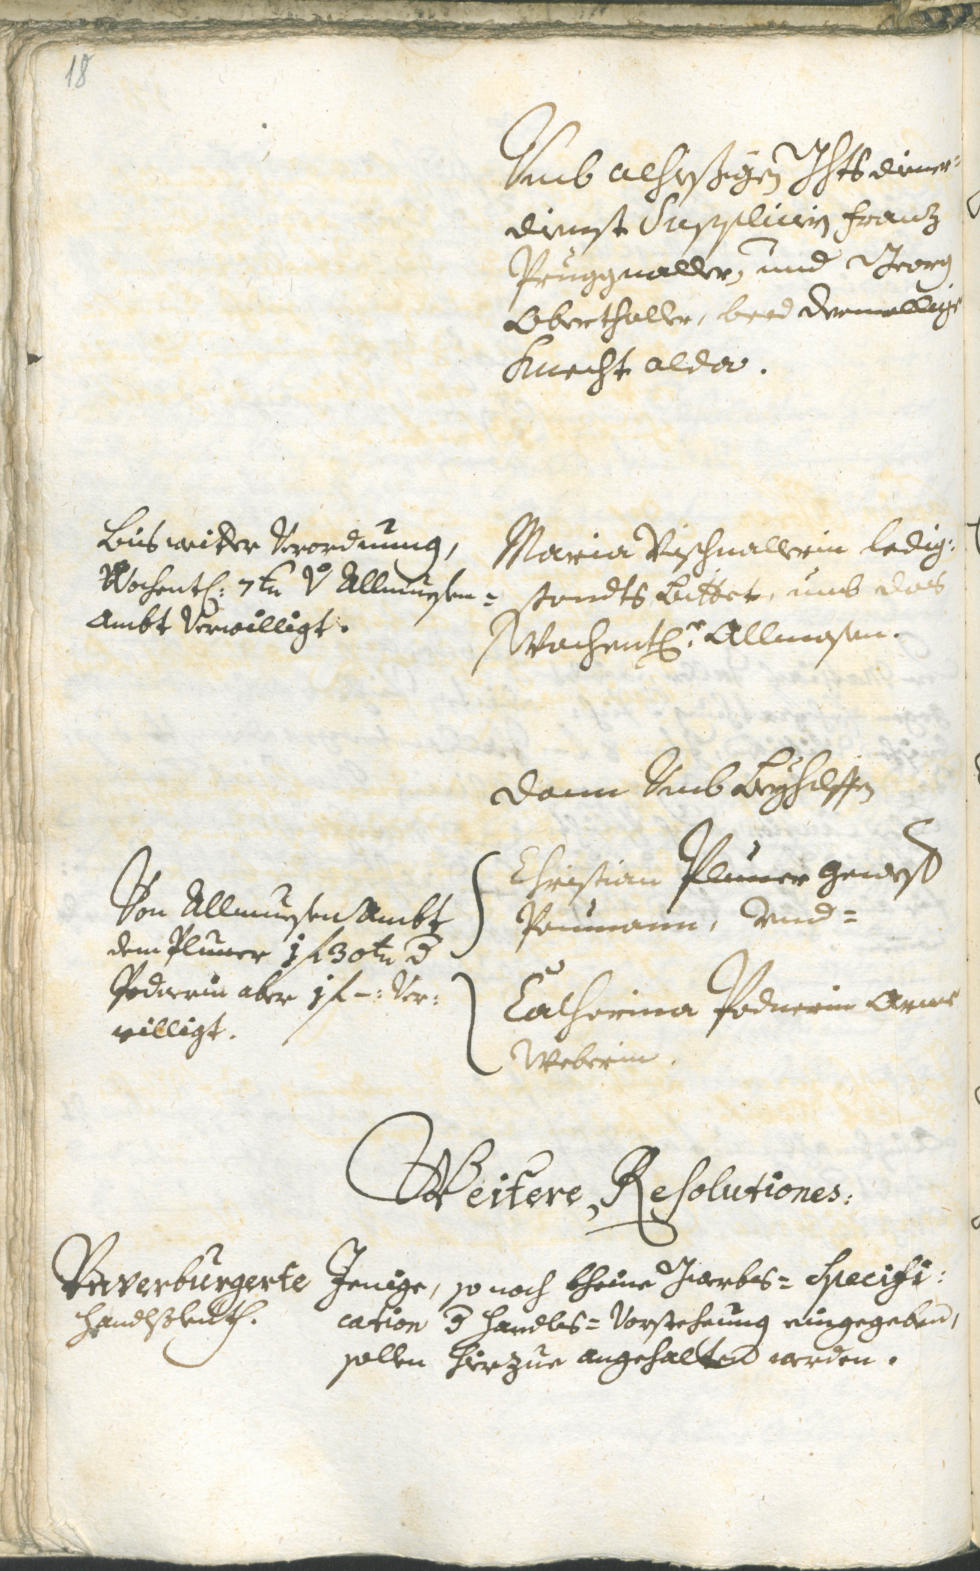 18
Umb alhießigen Ghtsdiener-
dienst Suppliciern Franz
Pruggmaller, und Georg
Oberthaller, beed dermallige
Knecht alda.
Bis weitter Verordnung,
Wochentl: 7 kr. V. Allmuesen-
Ambt Verwilligt.
Maria Vischnallerin ledig-
standts Bittet, umb das
Wochentl: Allmosen.
Dann Umb Beyhilffen
Von Allmuesen Ambt
dem Pluner 1 f 30 kr. d
Podnerin aber 1 f -: Ver-
willigt.
Christian Pluner gewest
Paumann, Und=
Catharina Podnerin Arme
Weberin.
Weitere Resolutiones:
Unverburgerte
Handlsleuth.
Jenige, so noch kheine Gwerbs= Specifi-
cation d Handls= Vorstehung eingegeben,
sollen hierzue angehalten werden.